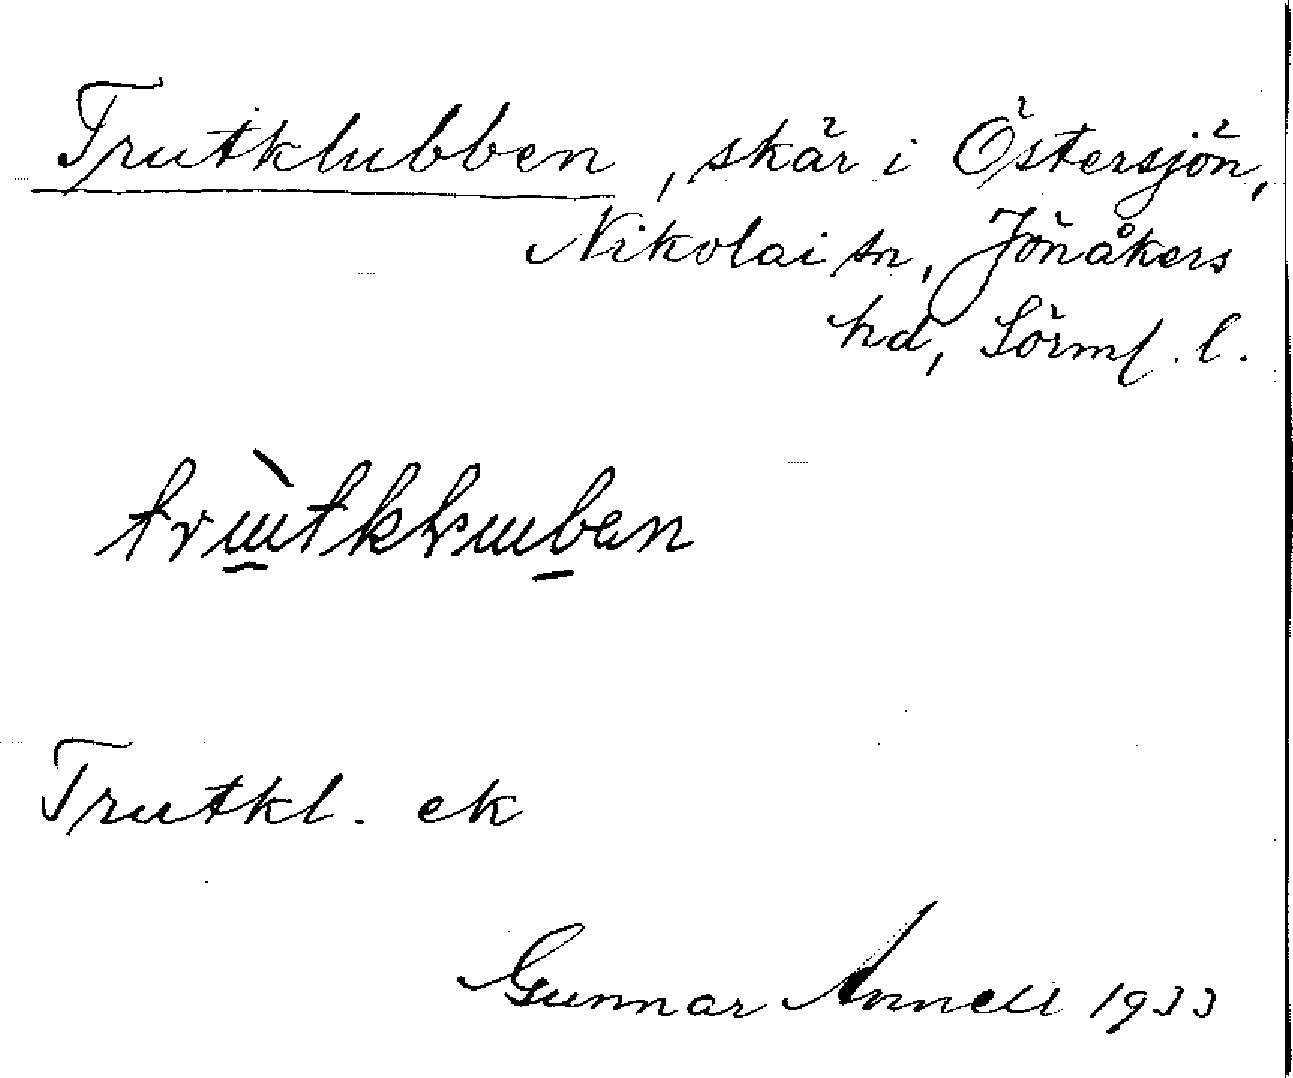 Trutklubben, skär i Östersjön,
Nikolai sn, Jönåkers
hd, Sörml. l.
Trutkl. ek
Gunnar Annell 1933